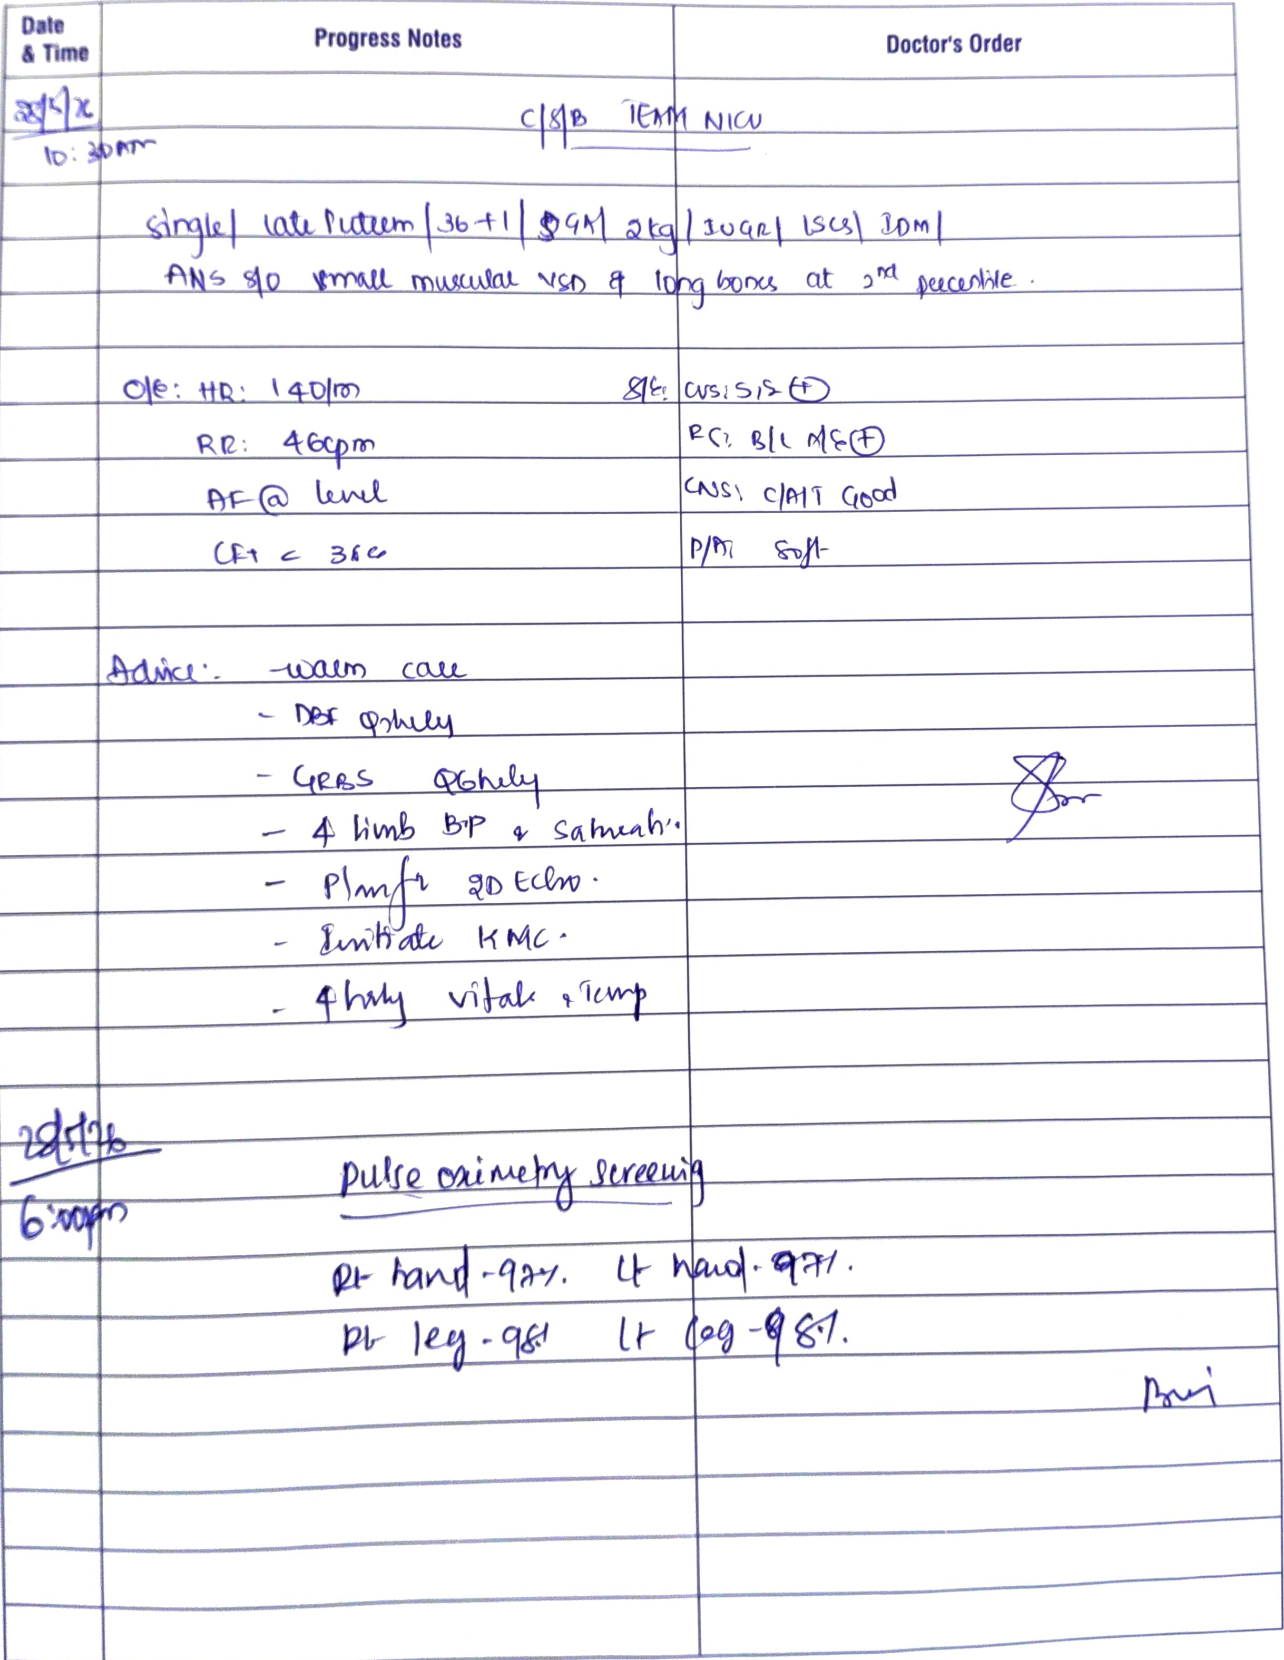 Date & Time Progress Notes Doctor's Order
28/5/26 C/S/B TEAM NICU
10:30AM
Single/ Late Preterm /36+1/ SGA/ 2kg/ IUGR/ LSCS/ IDM/
ANS S/O small muscular VSD & long bones at 2nd percentile.
O/E: HR: 140/m S/E: CVS: S1S2 ⊕
RR: 46cpm RS: B/L AE⊕
AF @ level CNS: C/A/T Good
CFT < 3sec P/A: Soft
Advice: - warm care
- DBF Q2hrly
- GRBS Q6hrly
- 4 limb BP & Saturation.
- Plan for 2D Echo.
- Initiate KMC.
- 4 hrly vitals & Temp
28/5/26
Pulse oximetry screening
6:00pm
Rt hand - 97%. Lt hand - 97%.
Rt leg - 98% Lt leg - 98%.